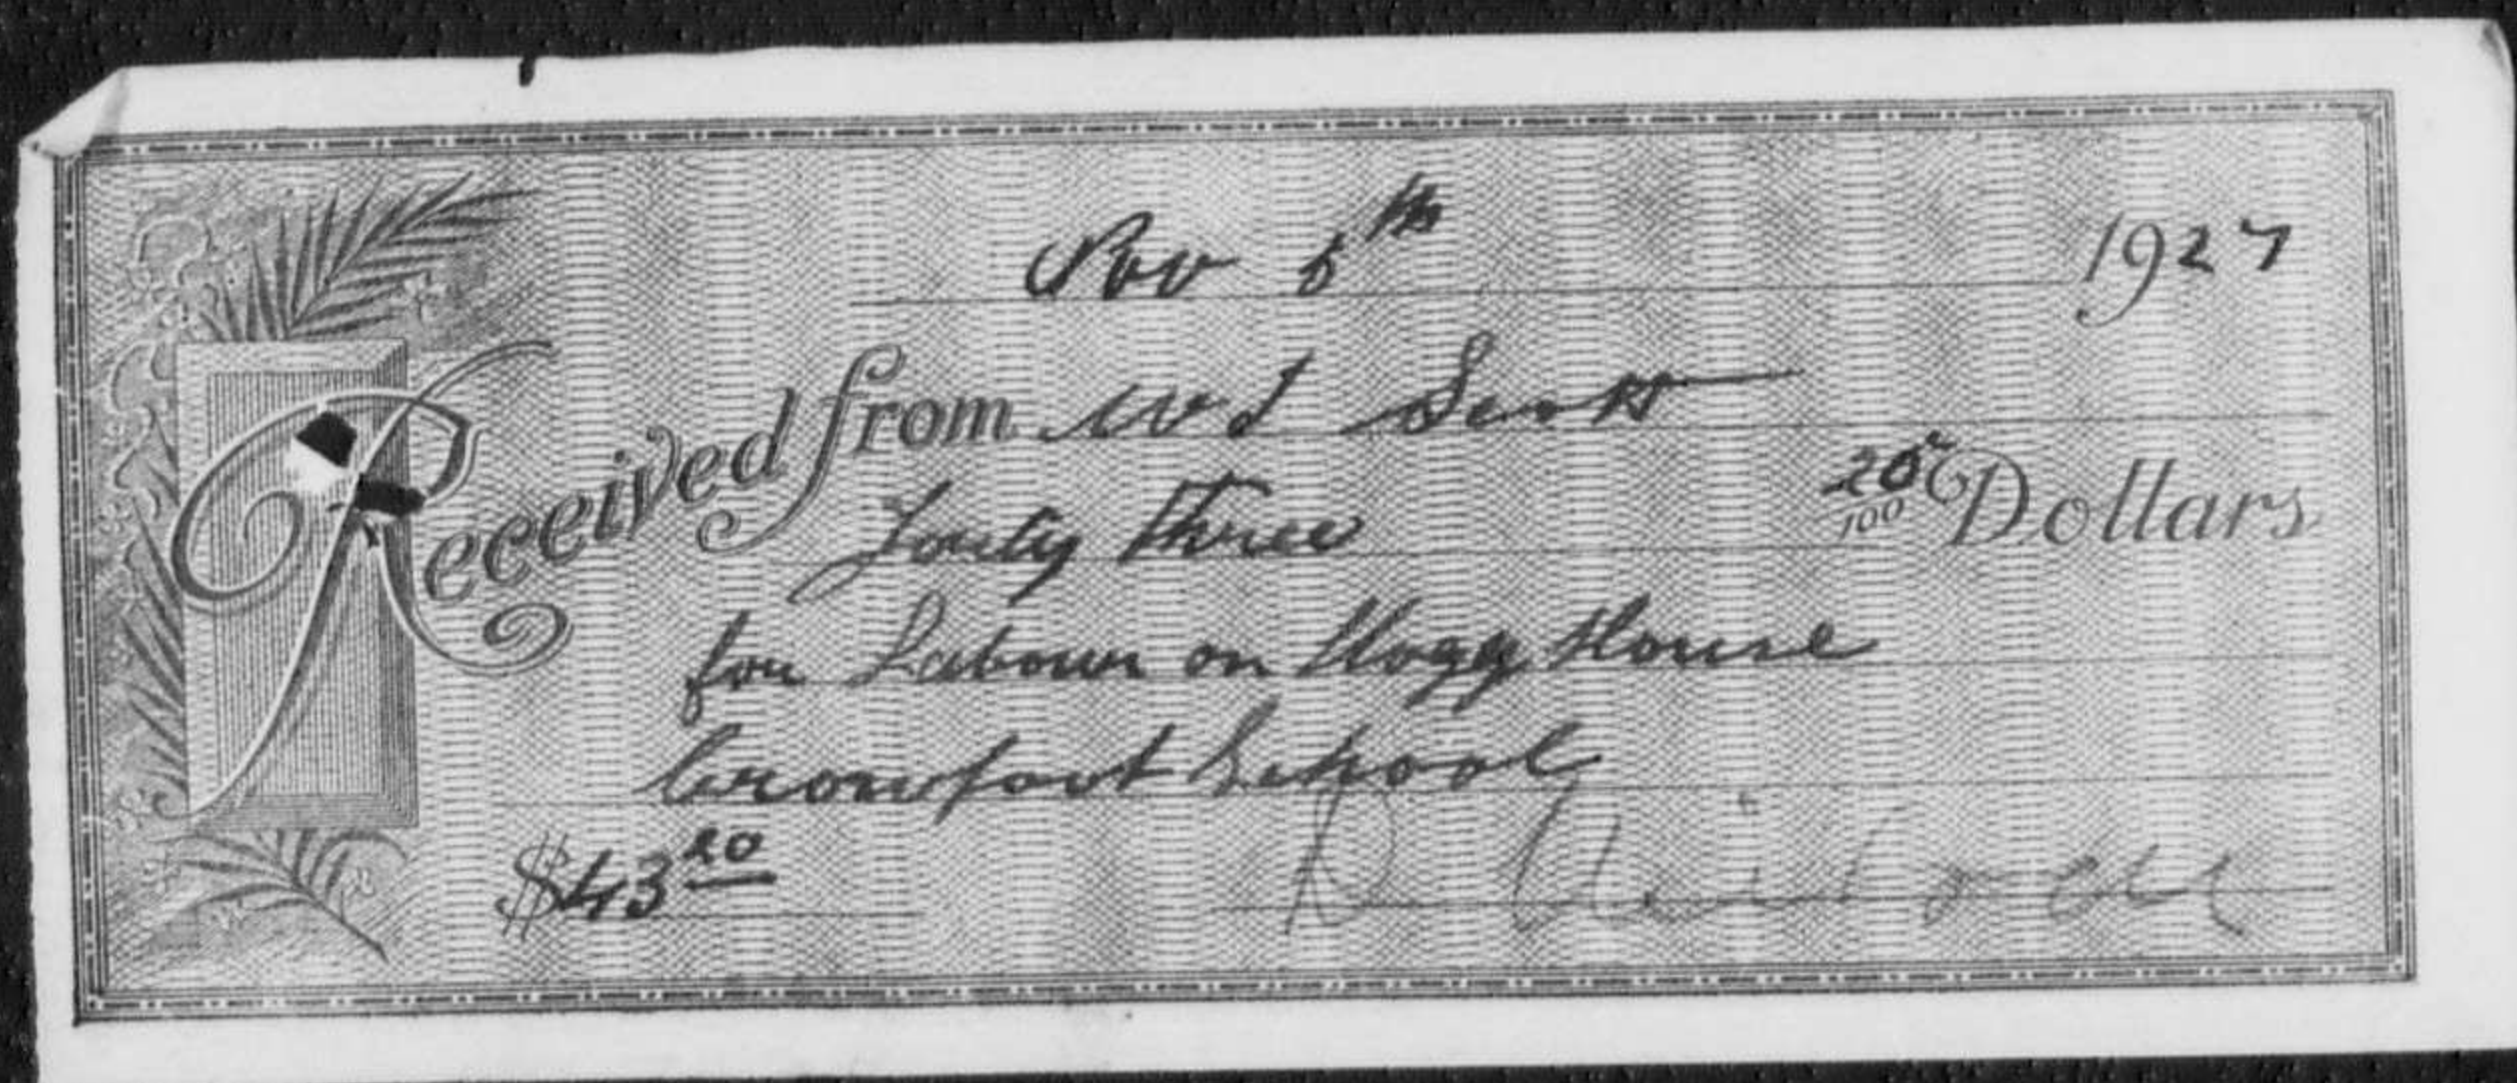 Nov 5th 1927
Received from W S Scott
Forty Three 20/100 Dollars
for Labour on Hogg House
Crowfoot School
$43 20
D